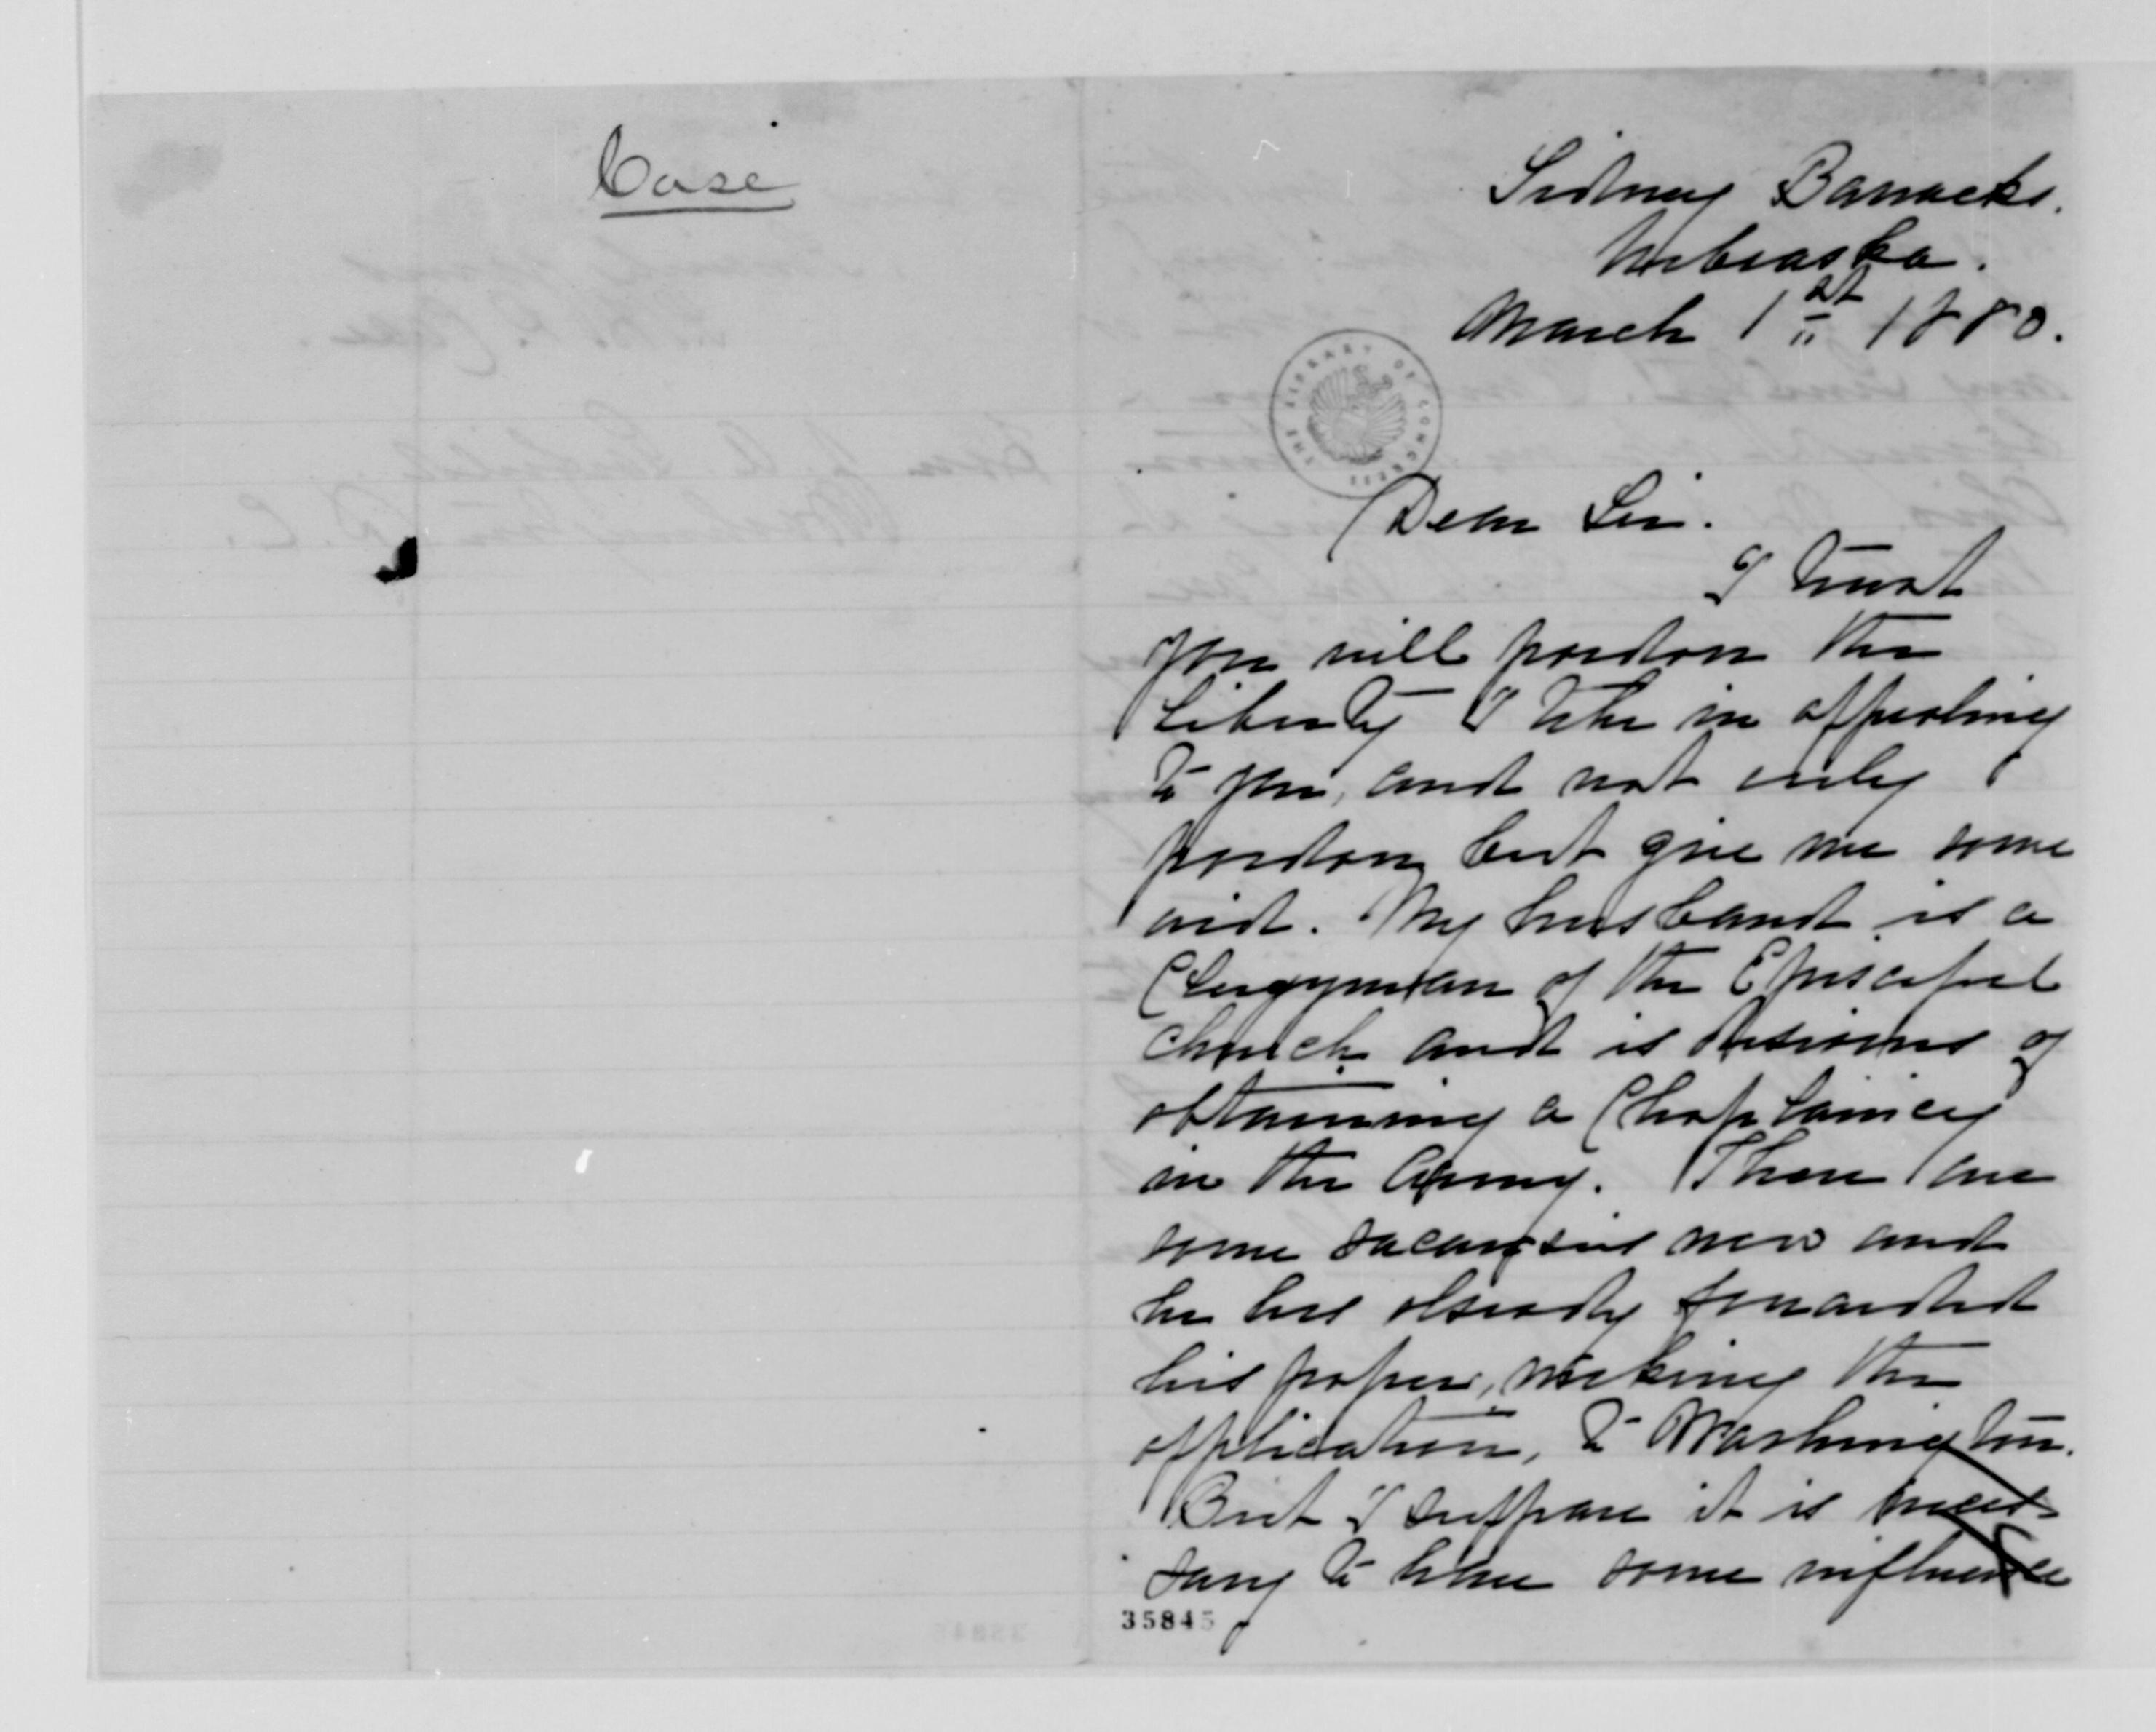 Case
Sidney Barracks.
Nebraska.
March 1st 1880.
THE LIBRARY OF CONGRESS
Dear Sir.
I trust
you will pardon the
liberty I take in appealing
to you, and not only
pardon but give me some
aid. My husband is a
Clergyman of the Episcopal
Church and is desirous of
obtaining a Chaplaincy
in the Army. There are
some vacancies now and
he has already forwarded
his papers, making the
application, to Washington.
But I suppose it is neces-
sary to have some influence
35845